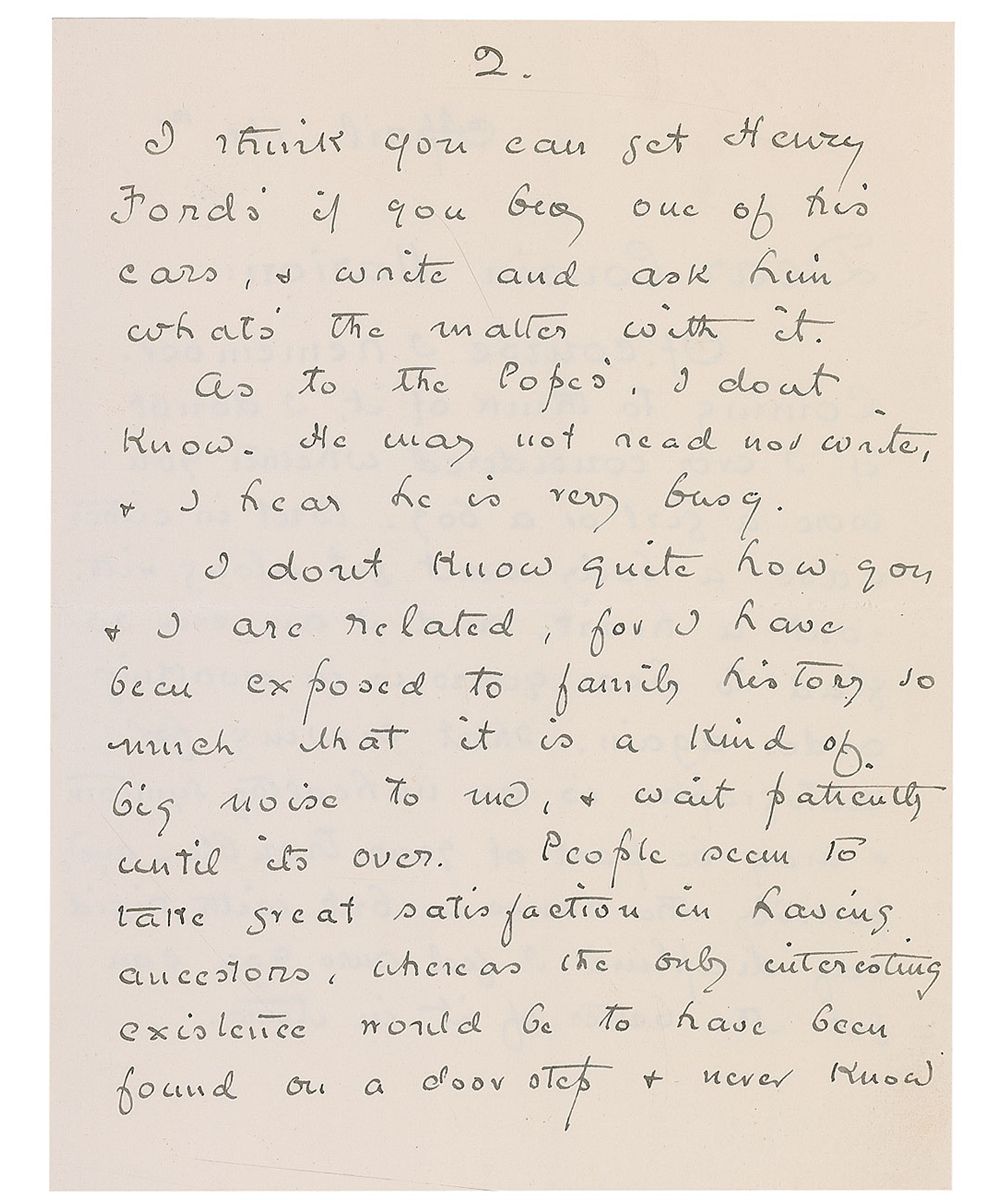 2.
I think you can get Henry
Fords' if you buy one of his
cars, & write and ask him
whats' the matter with it.
As to the Popes', I dont
Know. He may not read nor write,
& I hear he is very busy.
I dont Know quite how you
& I are related, for I have
been exposed to family history so
much that it is a Kind of.
big noise to me, & wait patiently
until its over. People seem to
take great satisfaction in having
ancestors, whereas the only interesting
existence would be to have been
found on a door step & never Know